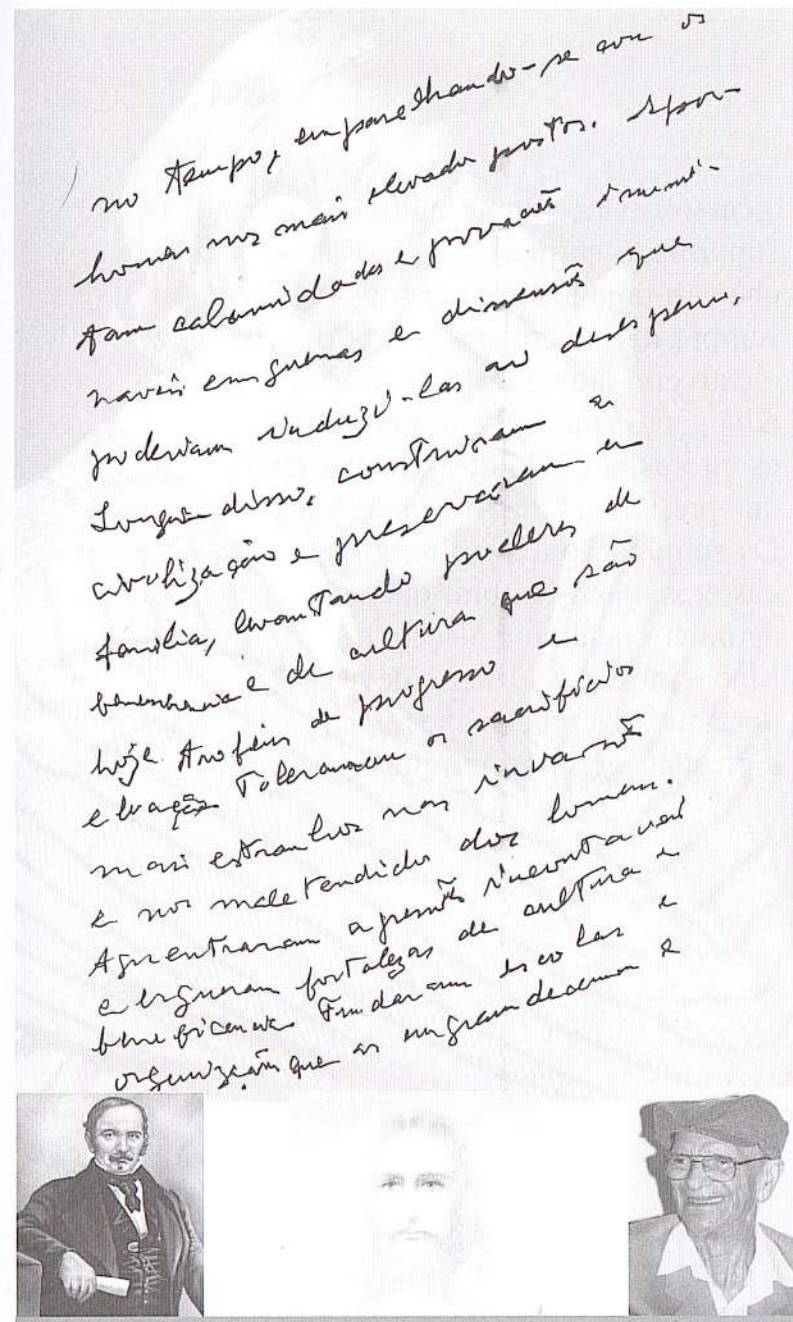 no tempo, emparelhando-se com os
homens nos mais elevados postos. Supor-
tam calamidades e provações
em guerras e dissensões que
poderiam induzi-las ao desespero,
Longe disso, construiram a
civilização e preservaram a
família, levantando poderes de
benemerencia e de cultura que são
hoje troféus de progresso e
elevação Toleraram os sacrifícios
mais estranhos nas invasões
e nos mal entendidos dos homens.
Aguentaram agressões incontaveis
e ergueram fortalezas de cultura e
beneficencia Fundaram escolas e
organizações que as engrandeceram e